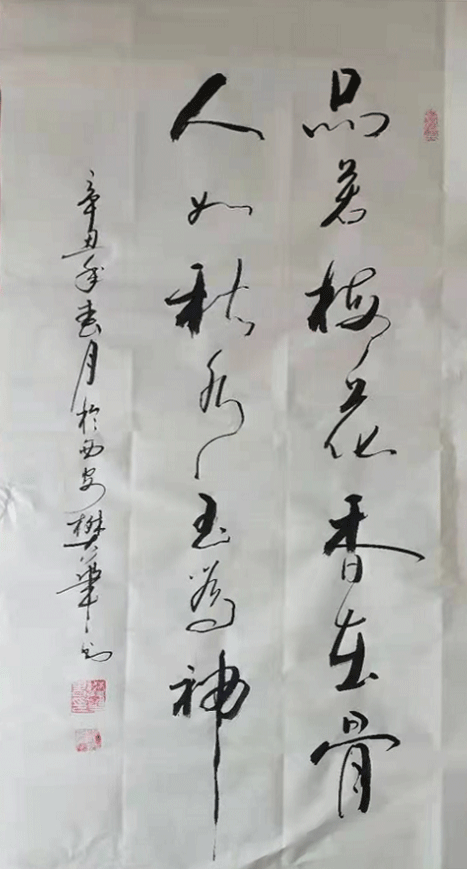 品若梅花香在骨
人如秋水玉为神
辛丑年春月於西安樊華